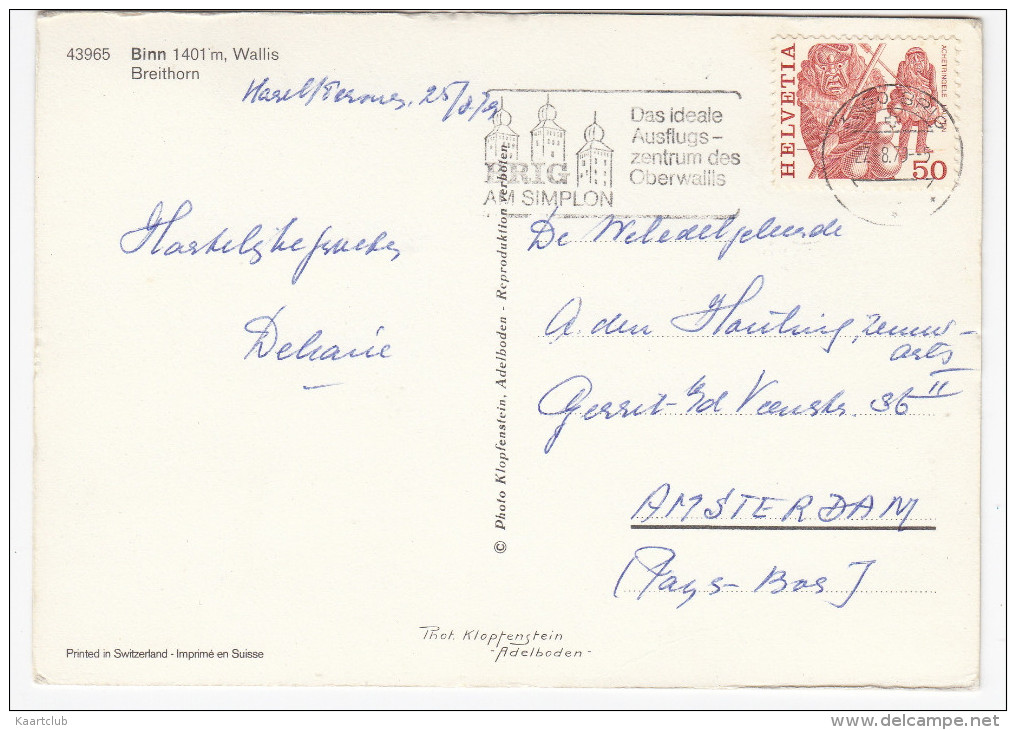 43965 Binn 1401 m, Wallis
Breithorn
25/8/79
Das ideale
Ausflugs-
zentrum des
Oberwallis
BRIG
AM SIMPLON
HELVETIA
ACHETRINGELE
50
8.79-5
Hartelijke groeten
De Weledelgeleerde
A. den Houting, zenuw-
arts
Gerrit v/d Veenstr. 36 II
AMSTERDAM
(Pays-Bas)
© Photo Klopfenstein, Adelboden - Reproduktion verboten
Phot. Klopfenstein
-Adelboden-
Printed in Switzerland - Imprimé en Suisse
Kaartclub
delcampe.net